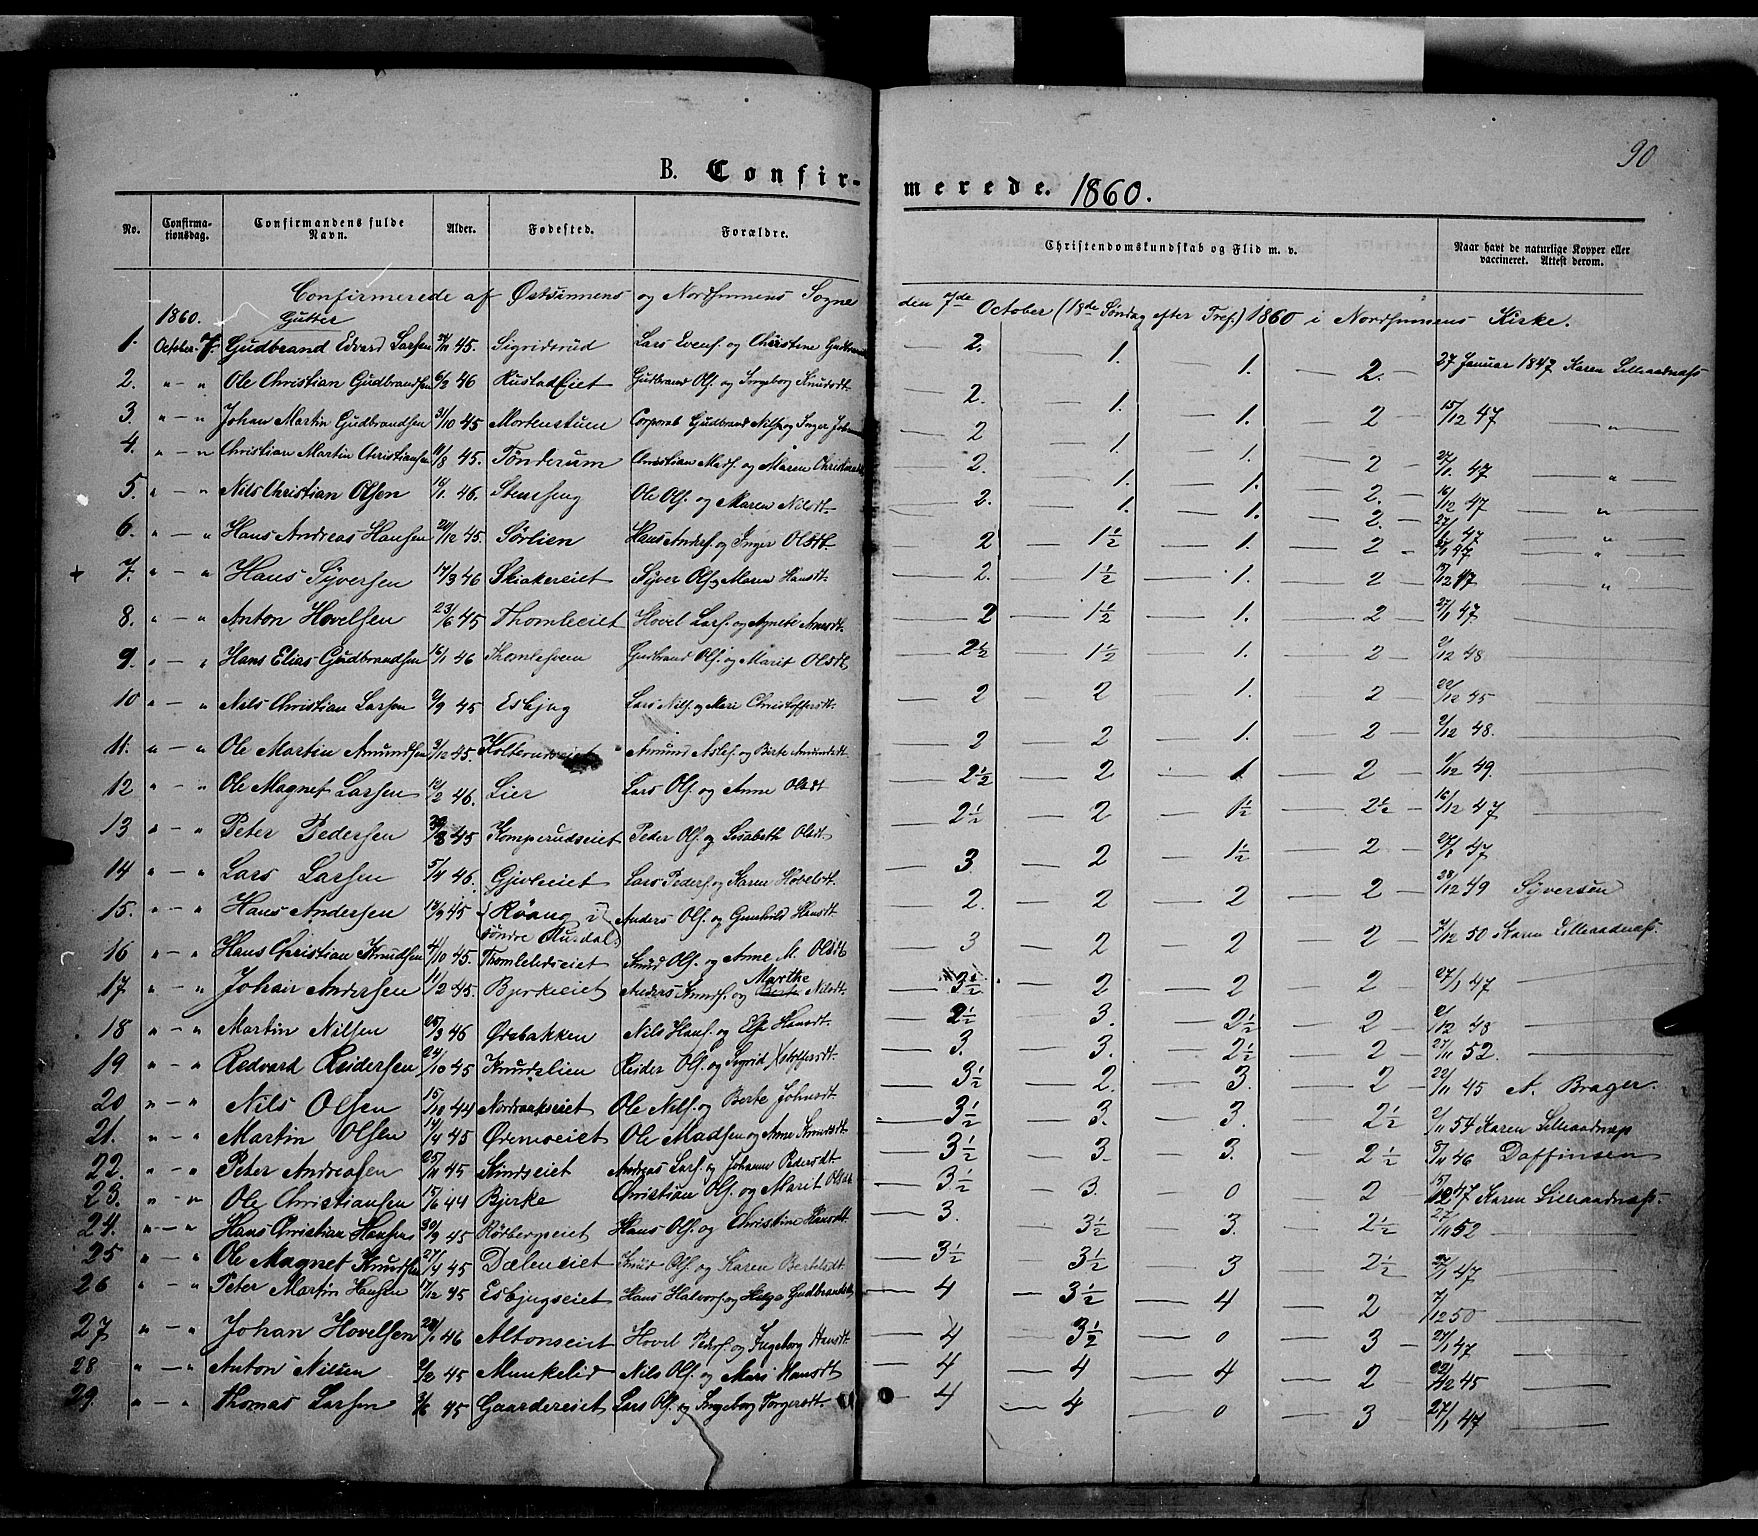 90
B. Confir-
merede. 1860.
No.
Confirma-
tionsdag.
Confirmandens fulde
Navn.
Alder.
Fødested.
Forældre.
Christendomskundskab og Flid m. v.
Naar havt de naturlige Kopper eller
vaccineret. Attest derom.
Confirmerede af Østsinnens og Nordsinnens Sogne den 7de October (18de Søndag efter Tref.) 1860 i Nordsinnens Kirke.
1860. Gutter
1. October 7. Gudbrand Edvard Larsen 45. Sigridsrud Lars Evens. og Christine 2. 1. 1. 2. 27 Januar 1847 Karen Lilleaadnæss
2. " - " Ole Christian Gudbrandsen 6/3 46 Rustadeiet Gudbrand Ols. og Ingeborg Knudsdt. 2. 1. 1. 2 15/12 47 "
3. " - " Johan Martin Gudbrandsen 31/10 45 Mortenstuen Corporal Gudbrand Nils. og Inger 2 1. 1. 2 27/1 47 "
4. " - " Christian Martin Christiansen 11/8 45. Tønderum Christian Mads. og Maren 2. 1. 1. 2. 16/12 47 "
5. " - " Nils Christian Olsen 18/1 46. Stenseng Ole Ols. og Maren Nilsdt. 2. 1. 1. 2. 27/1 47 "
6. " - " Hans Andreas Hansen 45. Sørlien Hans Anders. og Inger Olsdt. 2 1½ 1. 2 47 "
7. " - " Hans Syversen 17/3 46 Skiakereiet Syver Ols. og Maren Hansdt. 2. 1½ 1. 2 47 "
8. " - " Anton Hovelsen 23/6 45 Thomleeiet Hovel Lars. og Agnete 2 1½ 1. 2 27/1 47
9. " - " Hans Elias Gudbrandsen 16/1 46 Thomlesveen Gudbrand Ols. og Marit Olsdt. 2½ 1½ 1. 2 2/12 48
10 " - " Nils Christian Larsen 2/9 45 Esbjug Lars Nils. og Mari Christoffersdt. 2 2 1. 2 22/12 45
11. " - " Ole Martin Amundsen 3/12 45. Amund Aslef. og Berte Amundsdt. 2 2 1. 2 2/12 48.
12 " - " Ole Magnet Larsen 12/2 46. Lier Lars Ols. og Anne Olsdt 2½ 2 1. 2 1/12 49.
13 " - " Peter Pedersen 45 Komperudseiet Peder Ols. og Lisabeth Olsdt 2½ 2 1½ 2½ 16/12 47
14 " - " Lars Larsen 5/4 46. Gjuleeiet Lars Peders. og Karen Hovelsdt. 3 2 1½ 2 47
15. " - " Hans Andersen 13/9 45 Røang i søndre Aurdal Anders Ols. og Gunhild Hansdt. 2. 2 2 2 28/12 49 Syversen
16 " - " Hans Christian Knudsen 4/10 45. Thomleliereiet Knud Ols. og Anne M. Olsdt 3 2 2 2 7/12 50 Karen Lilleaadnæss.
17. " - " Johan Andersen 11/2 45. Bjerkeeiet Anders Amunds. og Marthe Nilsdt. 3½ 2 2 2 27/1 47
18 " - " Martin Nilsen 25/3 46 Øresbakken Nils Hans. og Else Hansdt. 2½ 3. 2½ 2 2/12 48
19 " - " Redvard Reidersen 24/10 45 Knudslien Reider Ols. og Sigrid Xstoffersdt. 3. 3. 2½ 2 27/11 52.
20 " - " Nils Olsen 15/10 44 Nordraakseiet Ole Nils. og Berte Johnsdt. 3½ 2. 3. 2 22/11 45 A. Brager.
21. " - " Martin Olsen 14/4 45 Øremoeiet Ole Madsen og Anne Knudsdt 3½ 3. 3. 2½ 2/11 54 Karen Lilleaadnæs
22. " - " Peter Andreasen 25/11 45 Kindseiet Andreas Lars. og Johanne Pedersdt. 3½ 3. 3. 2½ 8/11 46 Daffinsen
23. " - " Ole Christiansen 15/6 44 Bjerke Christian Ols. og Marit Olsdt 3½ 3. 0 2 15/12 47 Karen Lilleaadnæss.
24. " - " Hans Christian Hansen 30/9 45 Rørbergseiet Hans Ols. og Christine Hansdt. 3. 3½ 3. 2½ 27/11 52
25 " - " Ole Magnet Knudsen 27/4 45 Dæleneiet Knud Ols. og Karen Bertelsdt 3½ 3½ 3 2½ 27/1 47
26 " - " Peter Martin Hansen 17/12 45 Esbjugseiet Hans Halvors. og Helga Gudbrandsdt 4 3½ 4 2 7/12 50
27 " - " Johan Hovelsen 28/1 46 Altonseiet Hovel Peders. og Ingeborg Hansdt. 4 3½ 0 3 27/1 47
28 " - " Anton Nilsen 2/2 45 Munkelid Nils Ols. og Mari Hansdt. 4 4 4 2 22/12 45
29. " - " Thomas Larsen 3/6 45 Gaardereiet Lars Ols. og Ingeborg Torgersdt. 4 4 0 3 27/1 47